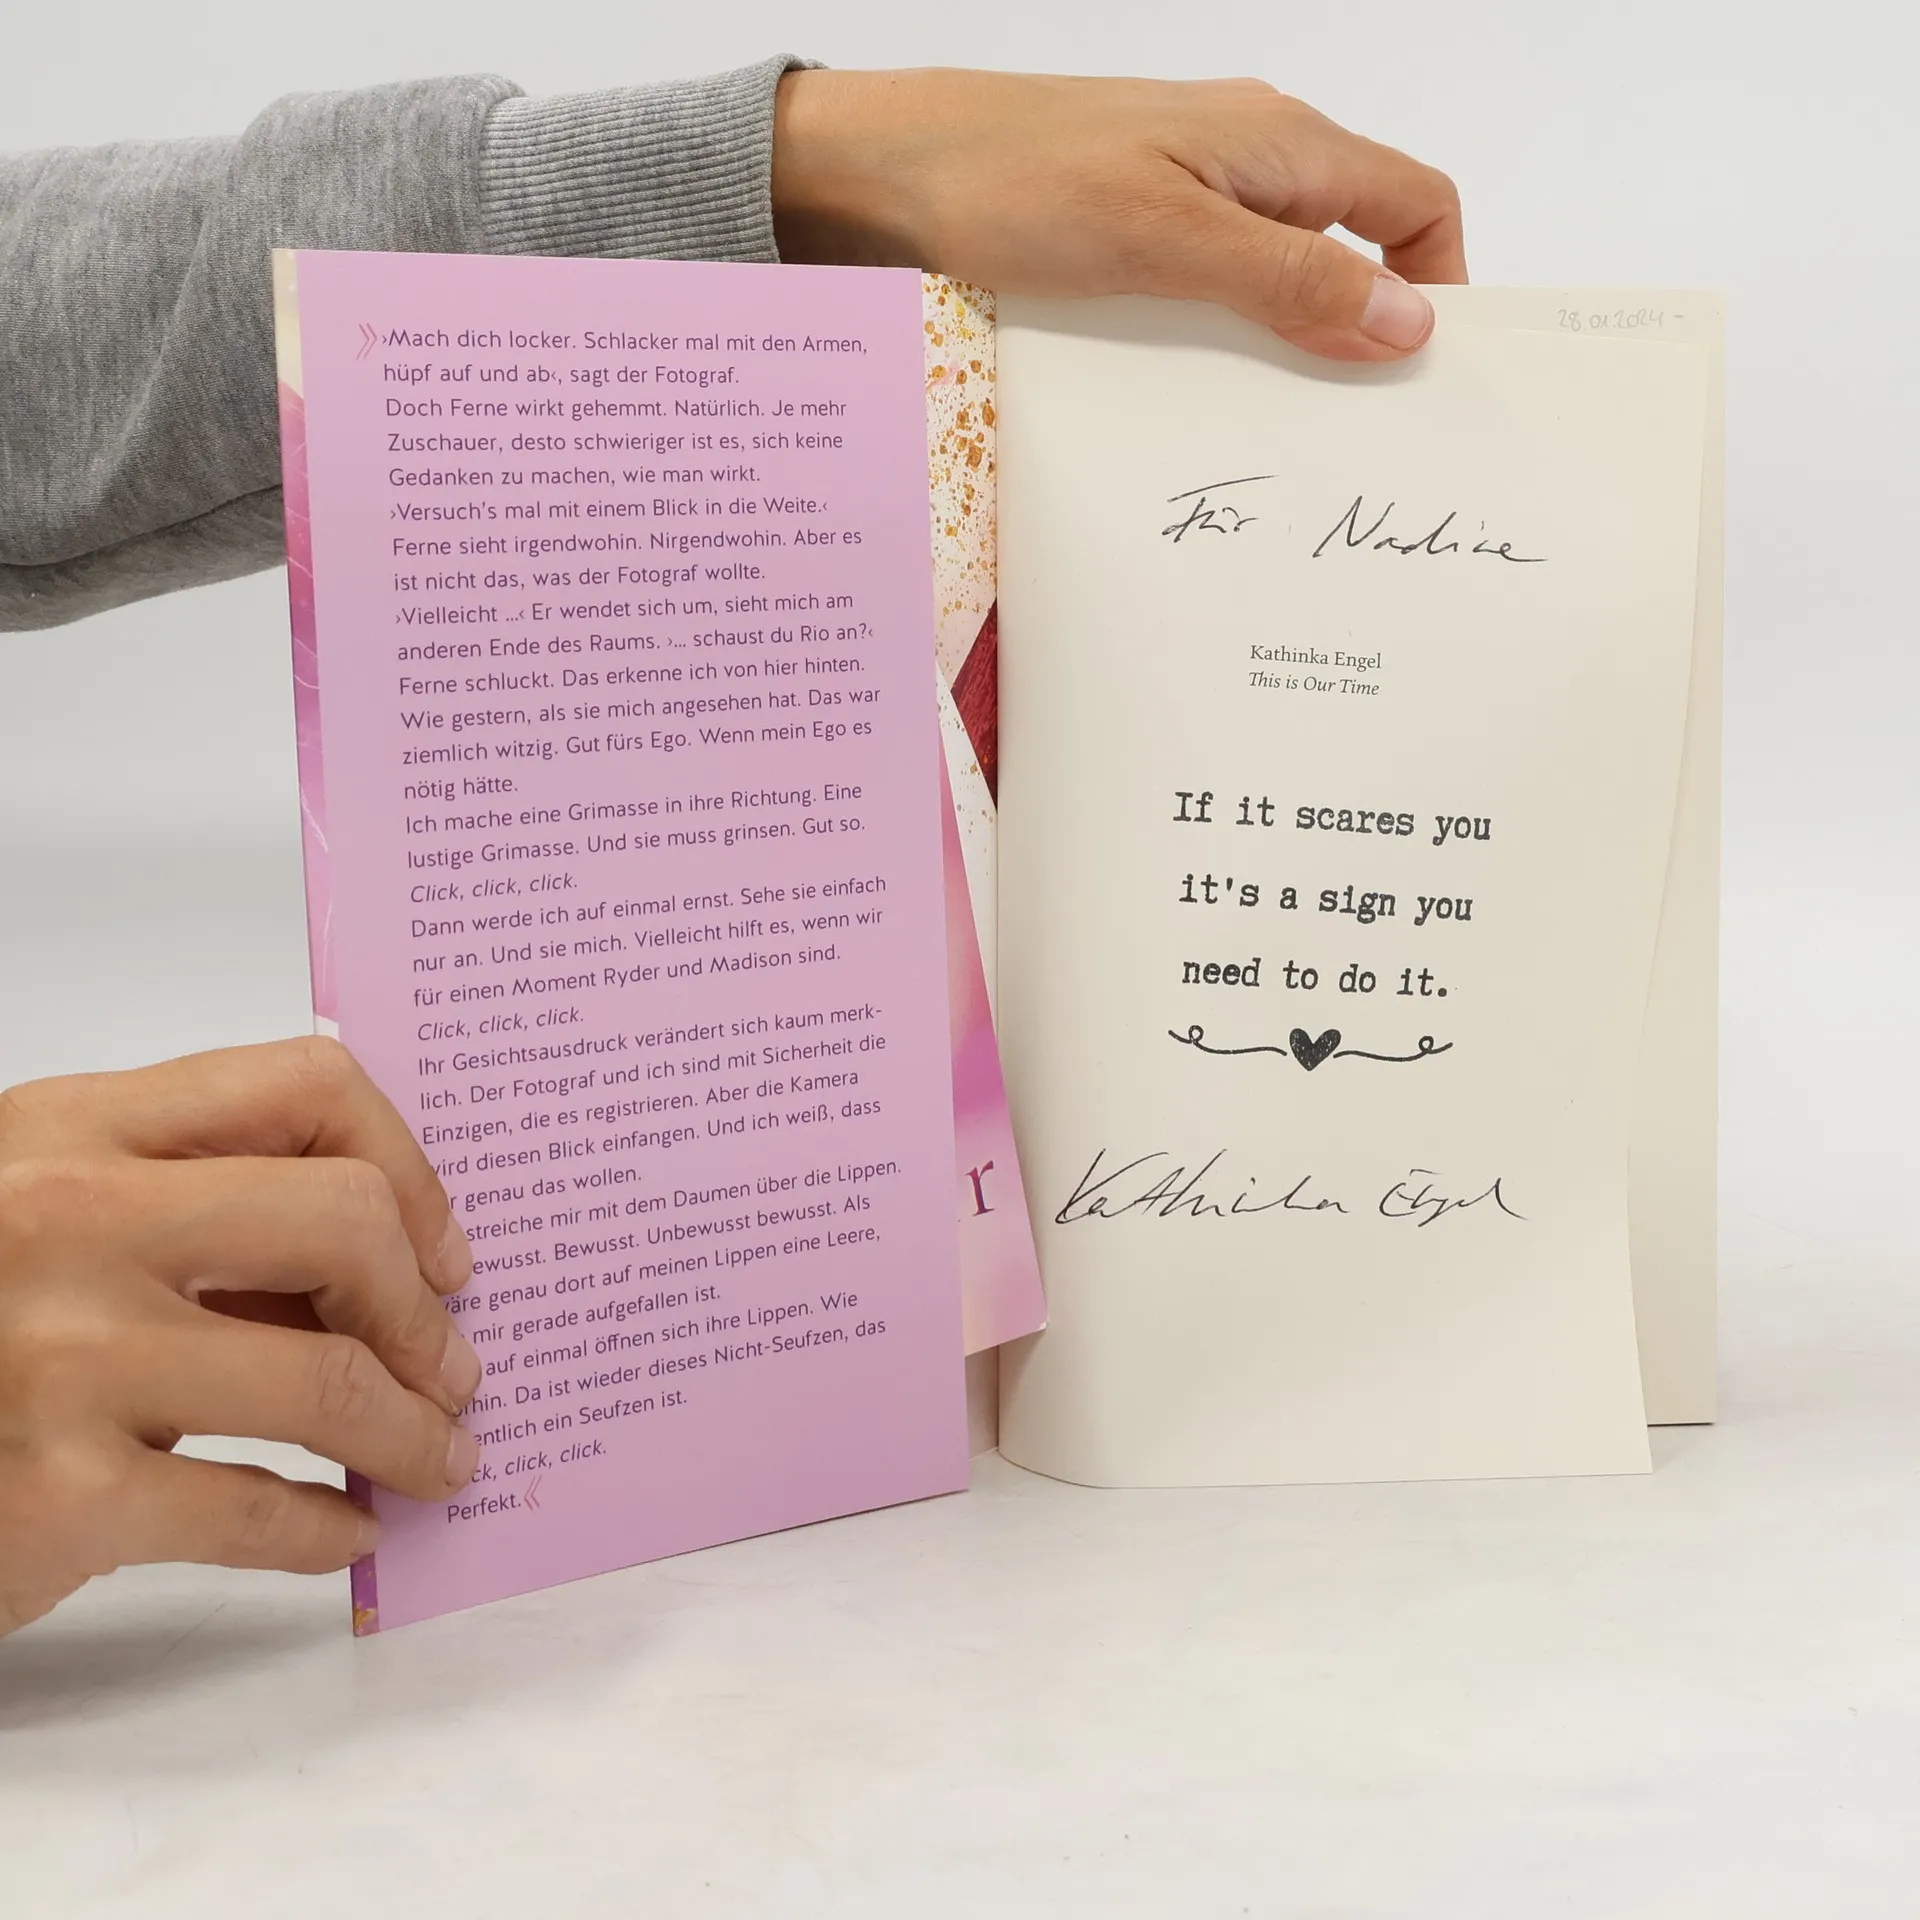 »›Mach dich locker. Schlacker mal mit den Armen,
hüpf auf und ab‹, sagt der Fotograf.
Doch Ferne wirkt gehemmt. Natürlich. Je mehr
Zuschauer, desto schwieriger ist es, sich keine
Gedanken zu machen, wie man wirkt.
›Versuch's mal mit einem Blick in die Weite.‹
Ferne sieht irgendwohin. Nirgendwohin. Aber es
ist nicht das, was der Fotograf wollte.
›Vielleicht ...‹ Er wendet sich um, sieht mich am
anderen Ende des Raums. ›... schaust du Rio an?‹
Ferne schluckt. Das erkenne ich von hier hinten.
Wie gestern, als sie mich angesehen hat. Das war
ziemlich witzig. Gut fürs Ego. Wenn mein Ego es
nötig hätte.
Ich mache eine Grimasse in ihre Richtung. Eine
lustige Grimasse. Und sie muss grinsen. Gut so.
Click, click, click.
Dann werde ich auf einmal ernst. Sehe sie einfach
nur an. Und sie mich. Vielleicht hilft es, wenn wir
für einen Moment Ryder und Madison sind.
Click, click, click.
Ihr Gesichtsausdruck verändert sich kaum merk-
lich. Der Fotograf und ich sind mit Sicherheit die
Einzigen, die es registrieren. Aber die Kamera
wird diesen Blick einfangen. Und ich weiß, dass
r genau das wollen.
streiche mir mit dem Daumen über die Lippen.
ewusst. Bewusst. Unbewusst bewusst. Als
äre genau dort auf meinen Lippen eine Leere,
mir gerade aufgefallen ist.
auf einmal öffnen sich ihre Lippen. Wie
rhin. Da ist wieder dieses Nicht-Seufzen, das
entlich ein Seufzen ist.
ck, click, click.
Perfekt.«
r
28.01.2024 -
Für Nadine
Kathinka Engel
This is Our Time
If it scares you
it's a sign you
need to do it.
Kathinka Engel